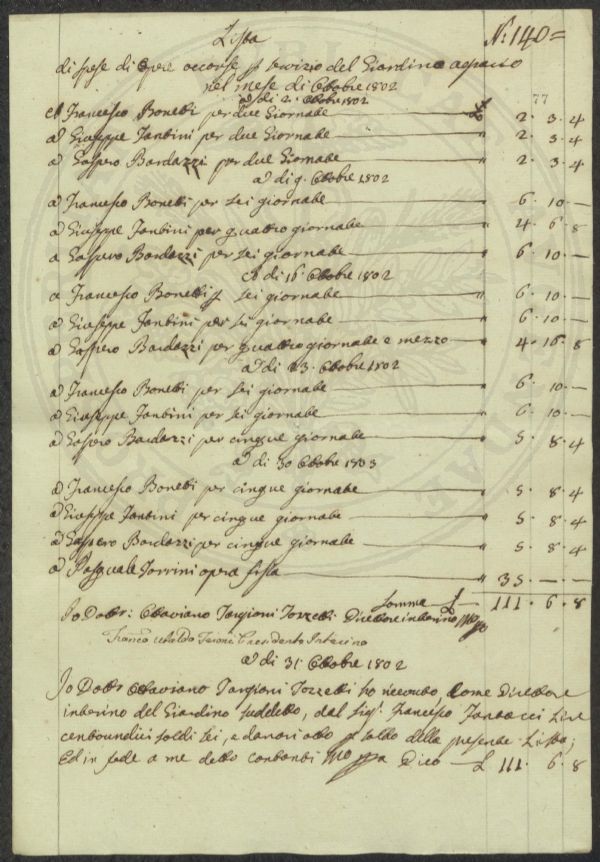 Lista
N.° 140=
di spese di opre occorse p servizio del Giardino a
nel mese di Ottobre 1802
77
a di 2. Ottobre 1802
A Francesco Bonetti per due Giornate £ 2. 3. 4
a Giuseppe Fantini per due Giornate " 2. 3. 4
a Gaspero Bardazzi per due Giornate " 2. 3. 4
a di 9. Ottobre 1802
a Francesco Bonetti per sei giornate " 6. 10. —
a Giuseppe Fantini per quattro giornate " 4. 6. 8
a Gaspero Bardazzi per sei giornate " 6. 10. —
a di 16. Ottobre 1802
a Francesco Bonetti p sei giornate " 6. 10. —
a Giuseppe Fantini per sei giornate " 6. 10. —
a Gaspero Bardazzi per quattro giornate e mezzo " 4. 16. 8
a di 23. Ottobre 1802
a Francesco Bonetti per sei giornate " 6. 10. —
a Giuseppe Fantini per sei giornate " 6. 10. —
a Gaspero Bardazzi per cinque giornate " 5. 8. 4
a di 30 Ottobre 1803
a Francesco Bonetti per cinque giornate " 5. 8. 4
a Giuseppe Fantini per cinque giornate " 5. 8. 4
a Gaspero Bardazzi per cinque giornate " 5. 8. 4
a Pasquale Torrini opera fissa " 35. — . —
Somma £ 111. 6. 8
Io Dott: Ottaviano Targioni Tozzetti Direttore interino
Presidente Interino
a di 31. Ottobre 1802
Io Dott Ottaviano Targioni Tozzetti ho ricevuto, come Direttore
interino del Giardino suddetto, dal Sig. Francesco Fantacci Lire
centoundici soldi sei, e danari otto p saldo della presente Lista;
Ed in fede a me detto contanti Mo ppa Dico £ 111. 6. 8